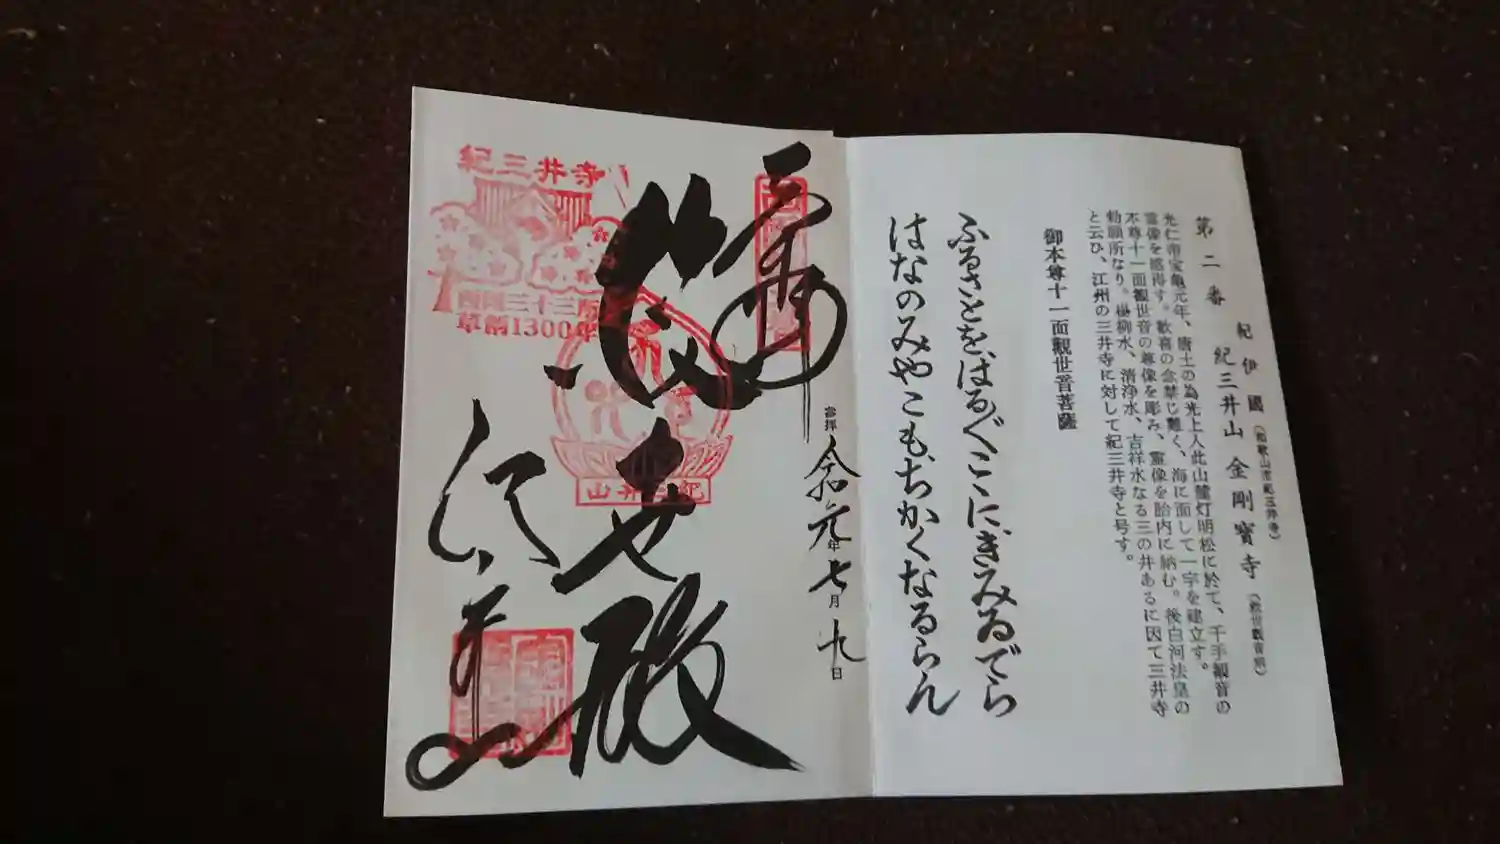 第二番
紀伊國（和歌山市紀三井寺）
紀三井山金剛寳寺（救世觀音宗）
光仁帝宝龜元年、唐土の為光上人此山麓灯明松に於て、千手観音の
霊像を感得す。歓喜の念禁じ難く、海に面して一宇を建立す。
本尊十一面観世音の尊像を彫み、霊像を胎内に納む。後白河法皇の
勅願所なり。楊柳水、清浄水、吉祥水なる三の井あるに因て三井寺
と云ひ、江州の三井寺に対して紀三井寺と号す。
御本尊十一面觀世音菩薩
ふるさとをはるばるここにきみゐでら
はなのみやこもちかくなるらん
奉拝
令和元年七月九日
救世殿
紀三井寺
西国三十三所
草創1300年
紀三井山